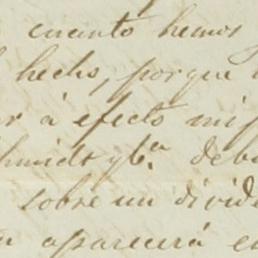 cuanto hemos
hecho, porque
à efecto mi
hmidt y Cª. deb
sobre un divid
aparecerá e